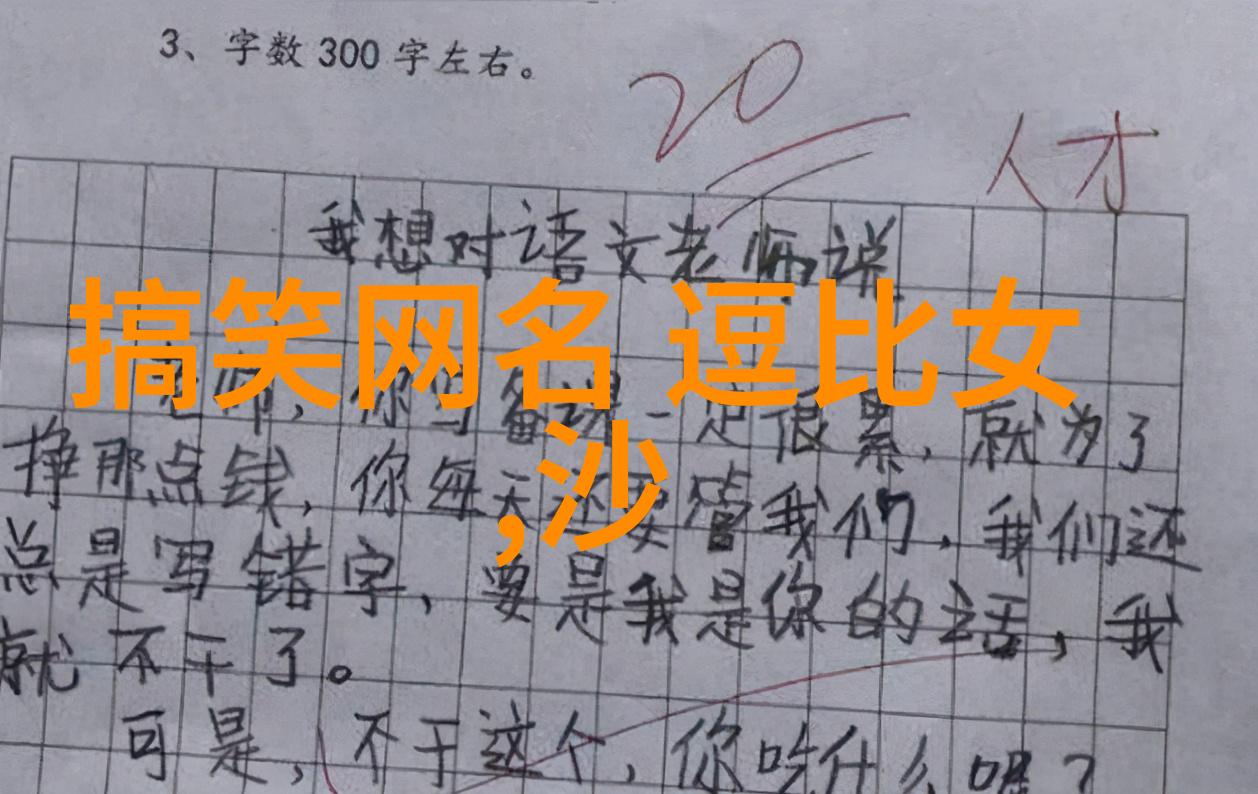 3、字数300字左右。
20
人才
我想对语文老师说
搞笑网名 逗比女
,沙
老师，你写备课一定很累，就为了
挣那点钱，你每天还要管我们，我们还
总是写错字，要是我是你的话，我
就不干了。
可是，不干这个，你吃什么呢？